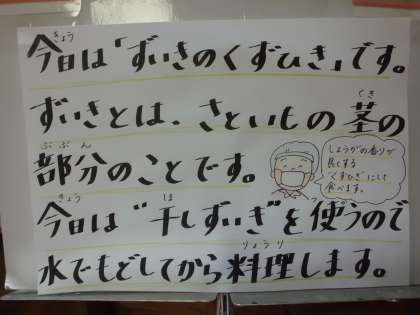 今日は「ずいきのくずひき」です。
ずいきとは、さといもの茎の
部分のことです。
しょうがの香りが
良くする
"くずひき"にして
食べます。
今日は"干しずいき"を使うので
水でもどしてから料理します。